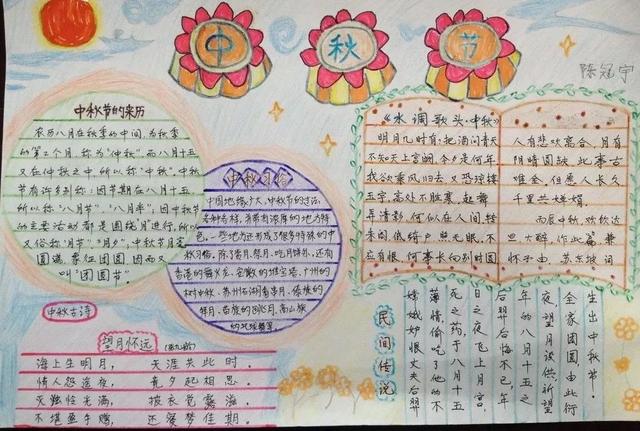 中秋节
陈冠宇
中秋节的来历
农历八月在秋季的中间,为秋季
的第二个月,称为“仲秋”,而八月十五
又在仲秋之中,所以称“中秋”。中秋
节有许多别称:因节期在八月十五
所以称“八月节”、“八月半”;因中秋节
的主要活动都是围绕月进行,所以
又俗称“月节”、“月夕”;中秋节月亮
圆满,象征团圆,因而又
叫“团圆节”。
中秋习俗
中国地缘广大,中秋节的习俗,
各种各样,并带有浓厚的地方特
色。一些地方还形成了很多特殊的中
秋习俗。除了赏月、祭月、吃月饼外,还有
香港的舞火龙、安徽的堆宝塔、广州的
树中秋、苏州石湖看串月、傣族的
拜月、苗族的跳月、高山族
的托球舞等
《水调歌头·中秋》
明月几时有,把酒问青天
不知天上宫阙,今夕是何年
我欲乘风归去,又恐琼楼
玉宇,高处不胜寒,起舞
弄清影,何似在人间,转
朱阁,低绮户,照无眠,不
应有恨,何事长向别时圆
人有悲欢离合,月有
阴晴圆缺,此事古
难全,但愿人长久
千里共婵娟。
丙辰中秋,欢饮达
旦,大醉,作此篇,兼
怀子由,苏东坡词
中秋古诗
望月怀远 (张九龄)
海上生明月, 天涯共此时。
情人怨遥夜, 竟夕起相思。
灭烛怜光满, 披衣觉露滋。
不堪盈手赠, 还寝梦佳期。
民间传说
嫦娥妒恨丈夫后羿
薄情,偷吃了他的不
死之药,于八月十五
日之夜飞上月宫,
后羿后悔不已,年
年的八月十五之
夜望月谈供祈望
全家团圆,由此衍
生出中秋节。